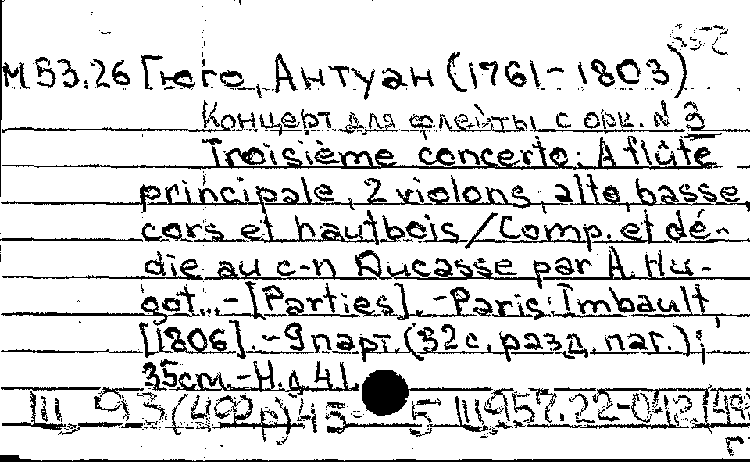 552
М53.26 Гюго, Антуан (1761-1803)
Концерт для флейты с орк. N 3
Troisième concerto: A flûte
principale, 2 violons, alto, basse,
cors et hautbois / Comp. et dé-
die au c-n Ducasse par A. Hu-
got... - [Parties]. - Paris: Imbault,
[1806]. - 9 парт. (32 с. разд. паг.);
35 см. - Н.д. 41.
Щ 93(4Фр)45- 5 Щ957.22-042(4Ф
г